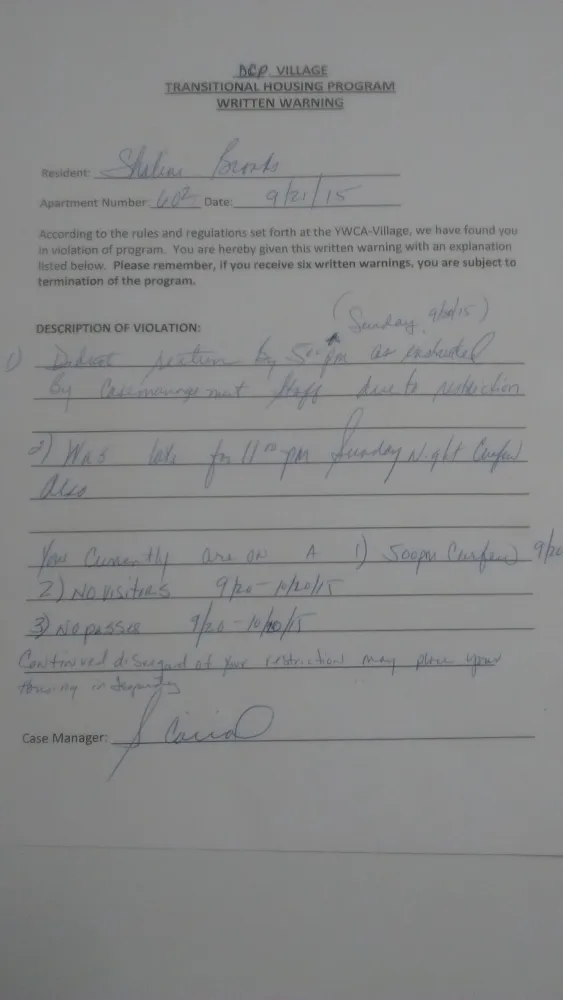 DCP VILLAGE
TRANSITIONAL HOUSING PROGRAM
WRITTEN WARNING
Resident: Brooks
Apartment Number: 602 Date: 9/21/15
According to the rules and regulations set forth at the YWCA-Village, we have found you
in violation of program. You are hereby given this written warning with an explanation
listed below. Please remember, if you receive six written warnings, you are subject to
termination of the program.
(Sunday, 9/20/15)
DESCRIPTION OF VIOLATION:
1) Did not return by 500 pm as instructed
By Case management Staff due to restriction
2) Was late for 11 00 pm Sunday Night Curfew
also
You Currently are on A 1) 500pm Curfew 9/20
2) NO VISITORS 9/20 - 10/20/15
3) No passes 9/20 - 10/20/15
Continued disregard of your restriction may place your
Housing in Jeopardy
Case Manager: